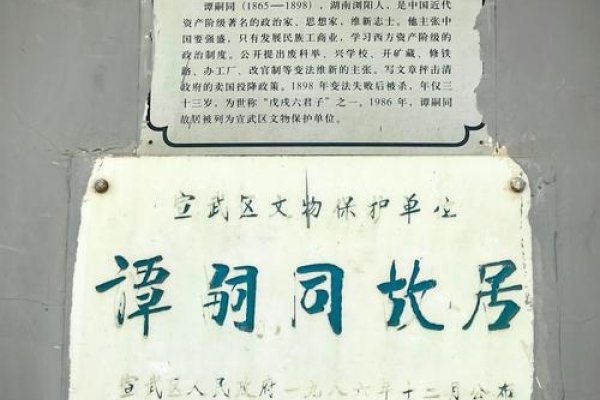 谭嗣同（1865—1898），湖南浏阳人，是中国近代
资产阶级著名的政治家、思想家，维新志士。他主张中
国要强盛，只有发展民族工商业，学习西方资产阶级的
政治制度。公开提出废科举、兴学校、开矿藏、修铁
路、办工厂、改官制等变法维新的主张。写文章抨击清
政府的卖国投降政策。1898 年变法失败后被杀，年仅三
十三岁，为世称“戊戌六君子”之一。1986 年，谭嗣同
故居被列为宣武区文物保护单位。
宣武区文物保护单位
谭嗣同故居
宣武区人民政府一九八六年十二月公布